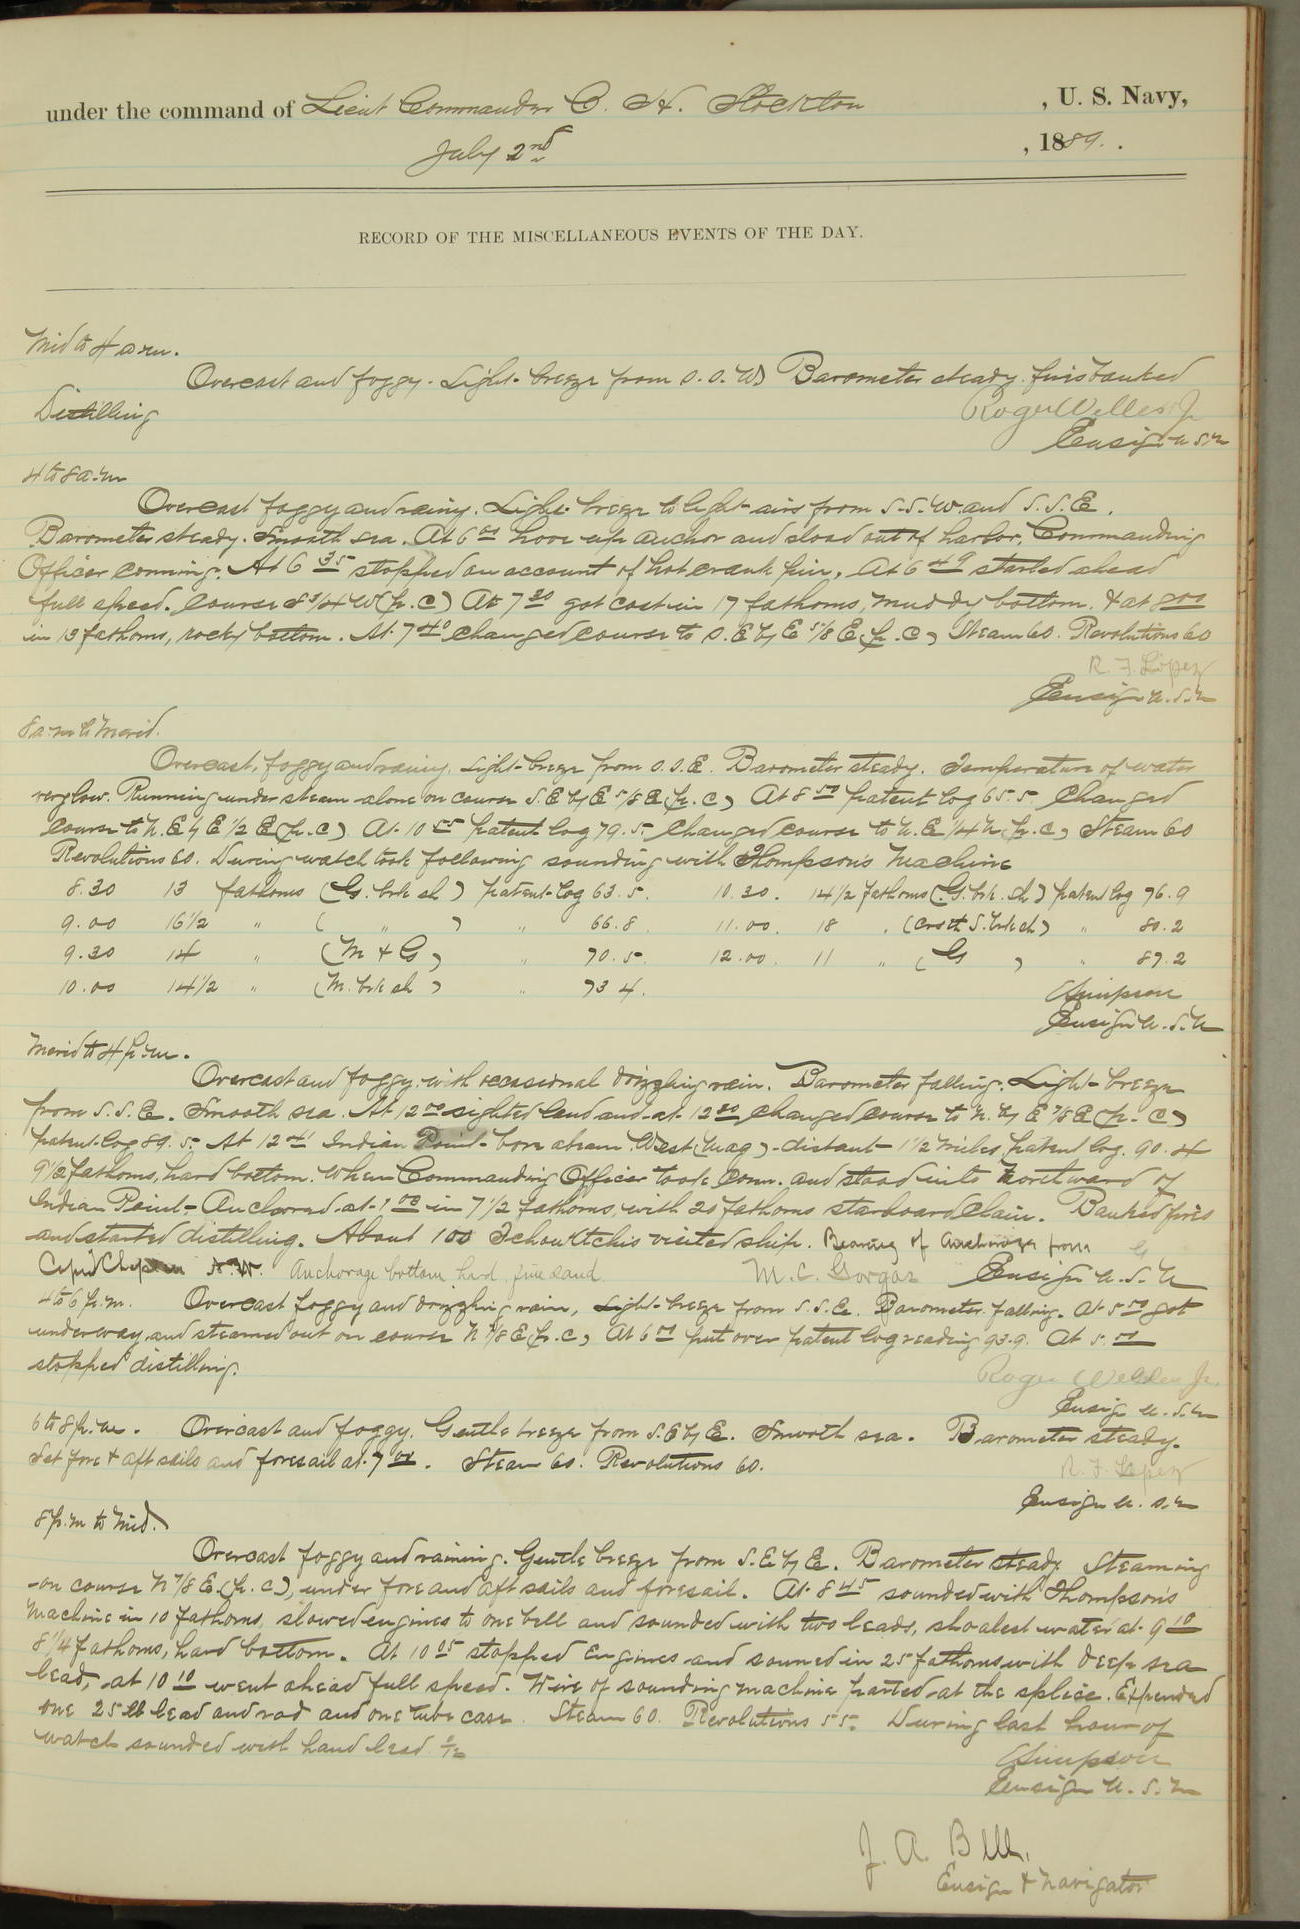 under the command of Lieut Commander C. H. Stockton , U. S. Navy,
July 2nd , 1889.
RECORD OF THE MISCELLANEOUS EVENTS OF THE DAY.
Mid to 4 a.m.
Overcast and foggy. Light breeze from S.S.W. Barometer steady. fires banked
Distilling
Roger Welles Jr
Ensign U.S.N
4 to 8 a.m
Overcast foggy and rainy. Light breeze to light airs from S.S.W and S.S.E.
Barometer steady. Smooth sea. At 6 00 hove up anchor and stood out of harbor, Commanding
Officer conning. At 6 35 stopped on account of hot crank pin. At 6 49 started ahead
full speed. Course S 3/4 W (p.c) At 7 30 got cast in 17 fathoms, muddy bottom. & at 8 00
in 13 fathoms, rocky bottom. At 7 40 changed course to S.E by E 5/8 E (p.c) Steam 60. Revolutions 60
R. F. Lopez
Ensign U.S.N
8 a.m to Merid.
Overcast, foggy and rainy. Light breeze from S.S.E. Barometer steady. Temperature of water
very low. Running under steam alone on course S.E by E 5/8 E (p.c) At 8 50 patent log 65.5 changed
course to N.E by E 1/2 E (p.c) At 10 55 patent log 79.5 changed course to N.E 1/4 N (p.c) Steam 60
Revolutions 60. During watch took following sounding with Thompson's Machine
8.30 13 fathoms (G. brk sh) patent log 63.5. 10.30. 14 1/2 fathoms (G. brk. sh) patent log 76.9
9.00 16 1/2 " ( " ) " 66.8. 11.00. 18 " (crs S. brk sh) " 80.2
9.30 14 " (M & G) " 70.5. 12.00. 11 " (G) " 87.2
10.00 14 1/2 " (M. brk sh) " 73 4.
Simpson
Ensign U.S.N
Merid to 4 p.m.
Overcast and foggy, with occasional drizzling rain. Barometer falling. Light breeze
from S.S.E. Smooth sea. At 12 00 sighted land and at 12 30 changed course to N. by E 7/8 E (p.c)
patent log 89.5 At 12 Indian Point bore abeam West (mag) distant 1 1/2 miles, patent log. 90.4
9 1/2 fathoms, hard bottom. When Commanding Officer took conn. and stood in to northward of
Indian Point. Anchored at 1 00 in 7 1/2 fathoms, with 20 fathoms starboard chain. Banked fires
and started distilling. About 100 Tchouktchis visited ship. Bearing of anchorage from
Cape Chaplin N.W. Anchorage bottom hard, fine sand. M. C. Gorgas Ensign U.S.N
4 to 6 p.m. Overcast foggy and drizzling rain, Light breeze from S.S.E. Barometer falling. At 5 50 got
underway and steamed out on course N 7/8 E (p.c) At 6 00 put over patent log reading 93.9. At 5.
stopped distilling.
Roger Welles Jr.
Ensign U.S.N
6 to 8 p.m. Overcast and foggy. Gentle breeze from S.E by E. Smooth sea. Barometer steady.
Set fore & aft sails and foresail at 7. Steam 60. Revolutions 60.
R. F. Lopez
Ensign U.S.N
8 p.m to Mid.
Overcast foggy and raining. Gentle breeze from S.E by E. Barometer steady Steaming
on course N 7/8 E. (p.c), under fore and aft sails and foresail. At 8 45 sounded with Thompson's
Machine in 10 fathoms, slowed engines to one bell and sounded with two leads, shoalest water at 9 10
8 1/4 fathoms, hard bottom. At 10 05 stopped Engines and souned in 25 fathoms with deep sea
lead, at 10 10 went ahead full speed. Wire of sounding machine parted at the splice. Expended
one 25 lb lead and rod and one tube case. Steam 60. Revolutions 55. During last hour of
watch sounded with hand lead
Simpson
Ensign U.S.N
J. A. Bell.
Ensign & Navigator